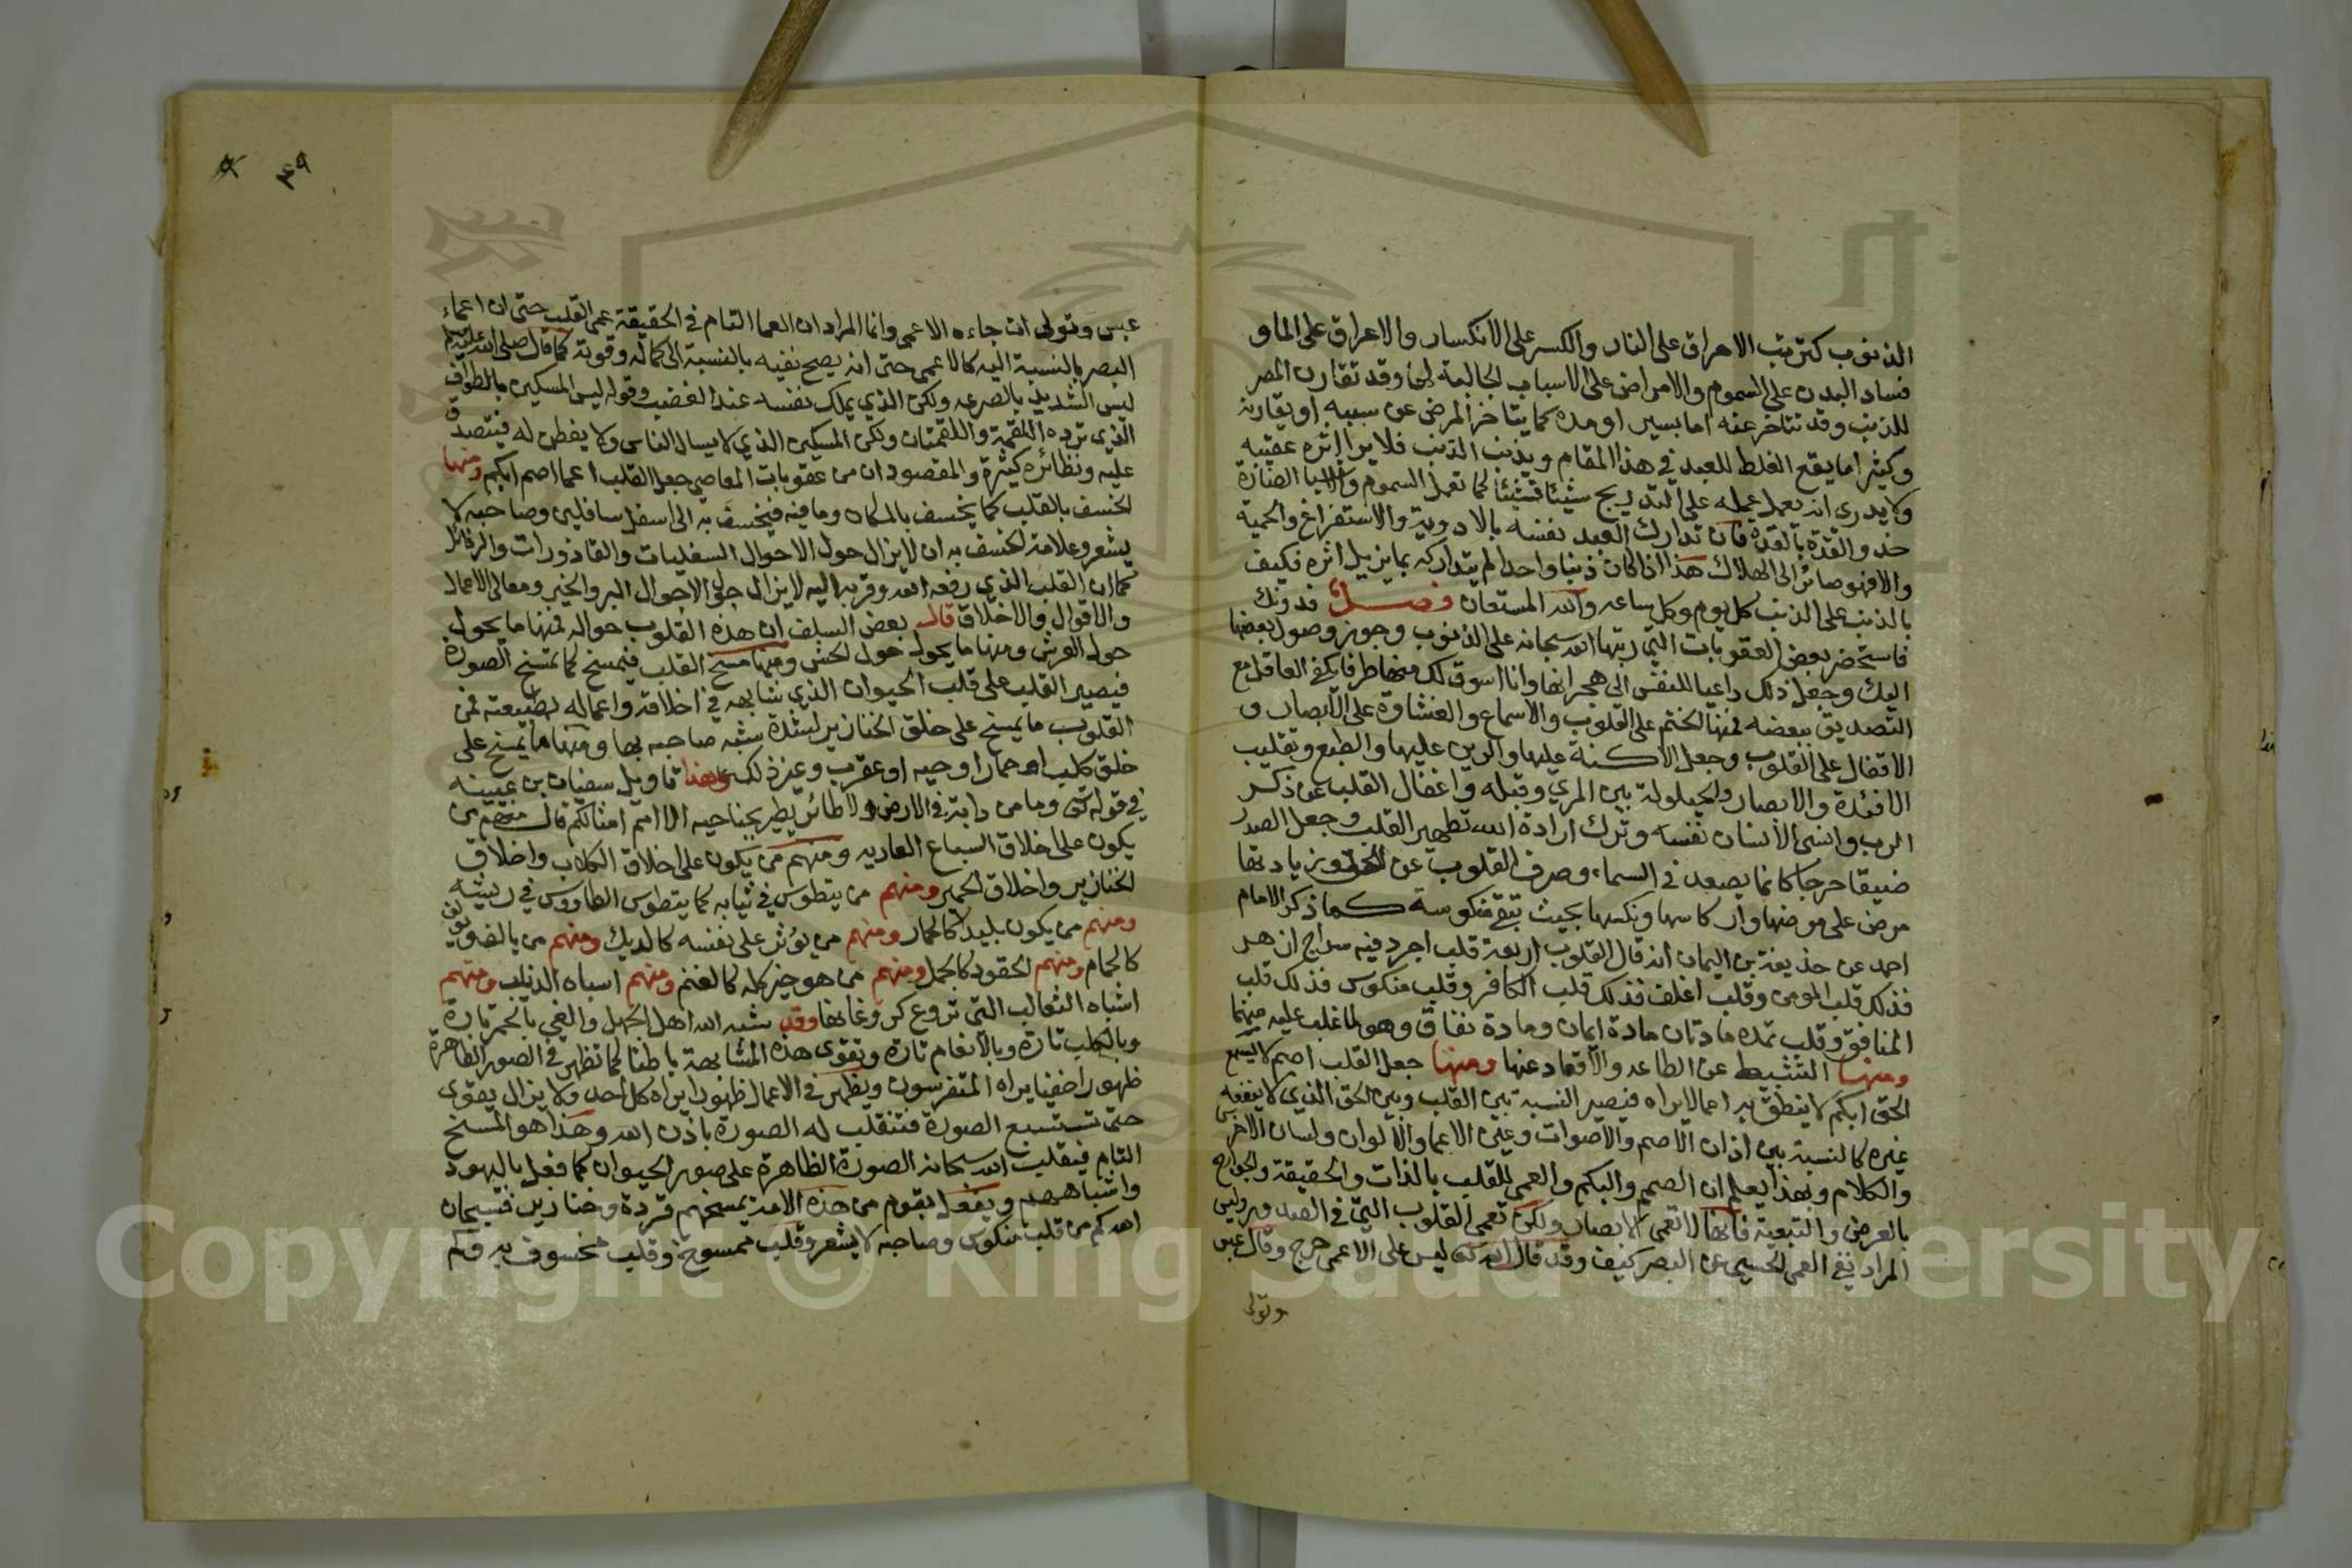 الذنوب كترتب الاحراق على النار والكسر على الانكسار والاغراق على الماء و
فساد البدن على السموم والامراض على الاسباب الجالبة لها وقد تقارن المضر
للذنب وقد تتاخر عنه اما يسير او مدة كما يتاخر المرض عن سببه او يقارنه
وكثير اما يقع الغلط للعبد في هذا المقام ويذنب الذنب فلا يرا اثره عقيبه
ولا يدري انه يعمل عمله على التدريج شيئا فشيئا كما تعمل السموم والاشيا الضارة
حذو القذة بالقذه فان تدارك العبد نفسه بالادوية والاستفراغ والحمية
والا فهو صائر الى الهلاك هذا اذا كان ذنبا واحدا لم يتداركه بما يزيل اثره فكيف
بالذنب على الذنب كل يوم وكل ساعه والله المستعان فصل فدونك
فاستحضر بعض العقوبات التي رتبها الله سبحانه على الذنوب وجوز وصول بعضها
اليك وجعل ذلك داعيا للنفس الى هجرانها وانا اسوق لك منها طرفا يكفي العاقل مع
التصديق ببعضه فمنها الختم على القلوب والاسماع والغشاوة على الابصار و
الاقفال على القلوب وجعل الاكنة عليها والرين عليها والطبع وتقليب
الافئدة والابصار والحيلولة بين المرئ وقبله واغفال القلب عن ذكر
الرب وانسى الانسان نفسه وترك ارادة الله تطهير القلب وجعل الصدر
ضيقا حرجا كانما يصعد في السماء وصرف القلوب عن الحق وزيادتها
مرض على مرضها واركاسها ونكسها بحيث تبقى منكوسة كما ذكر الامام
احمد عن حذيفة بن اليمان انه قال القلوب اربعة قلب اجرد فيه سراج ازهر
فذلك قلب المومن وقلب اغلف فذلك قلب الكافر وقلب منكوس فذلك قلب
المنافق وقلب تمده مادتان مادة ايمان ومادة نفاق وهو لما غلب عليه منهما
ومنها التثبيط عن الطاعه والاقعاد عنها ومنها جعل القلب اصم لا يسمع
الحق ابكم لا ينطق به اعما لا يراه فيصير النسبة بين القلب وبين الحق الذي لا ينفعه
غيره كالنسبة بين اذن الاصم والاصوات وعين الاعما والالوان ولسان الاخرس
والكلام وبهذا يعلم ان الصمم والبكم والعمى للقلب بالذات والحقيقة والجوارح
بالعرض والتبعية فانها لا تعمى الابصار ولكن تعمى القلوب التي في الصدور وليس
المراد نفي العمى الحسي عن البصر كيف وقد قال الله تعالى ليس على الاعمى حرج وقال عبس
وتولى
٤٩
عبس وتولى ان جاءه الاعمى وانما المراد ان العما التام في الحقيقة عمى القلب حتى ان اعماء
البصر بالنسبة اليه كالاعمى حتى انه يصح نفيه بالنسبة الى كماله وقوته كما قال صلى الله عليه وسلم
ليس الشديد بالصرعه ولكن الذي يملك نفسه عند الغضب وقوله ليس المسكين بالطواف
الذي ترده اللقمة واللقمتان ولكن المسكين الذي لا يسال الناس ولا يفطن له فيتصدق
عليه ونظائره كثيرة والمقصود ان من عقوبات المعاصي جعل القلب اعما اصم ابكم ومنها
الخسف بالقلب كما يخسف بالمكان وما فيه فيخسف به الى اسفل سافلين وصاحبه لا
يشعر وعلامة الخسف به ان لا يزال حول الاحوال السفليات والقاذورات والرذائل
كما ان القلب الذي رفعه الله وقربه اليه لا يزال حول الاحوال البر والخير ومعالى الاعمال
والاقوال والاخلاق قال بعض السلف ان هذه القلوب حواله فمنها ما يحول
حول العرش ومنها ما يحول حول الحش ومنها مسخ القلب فيمسخ كما تمسخ الصورة
فيصير القلب على قلب الحيوان الذي شابهه في اخلاقه واعماله بطبيعته فمن
القلوب ما يمسخ على خلق الخنازير لشدة شبه صاحبه بها ومنها ما يمسخ على
خلق كلب او حمار او حيه او عقرب وغير ذلك وهذا تاويل سفيان بن عيينه
في قوله تعالى وما من دابة في الارض ولا طائر يطير بجناحيه الا امم امثالكم قال منهم من
يكون على اخلاق السباع العاديه ومنهم من يكون على اخلاق الكلاب واخلاق
الخنازير واخلاق الحمير ومنهم من يتطوس في ثيابه كما يتطوس الطاووس في ريشه
ومنهم من يكون بليدا كالحمار ومنهم من يوثر على نفسه كالديك ومنهم من يالف ويولف
كالحمام ومنهم الحقود كالجمل ومنهم من هو خير كله كالغنم ومنهم اسباه الذئاب ومنهم
اشباه الثعالب التي تروع كروغانها وقد شبه الله اهل الجهل والغي بالحمر تارة
وبالكلب تارة وبالانعام تارة وتقوى هذه المشابهة باطنا كما تظهر في الصور الظاهرة
ظهورا خفيا يراه المتفرسون ويظهر في الاعمال ظهورا يراه كل احد ولا يزال يقوى
حتى تستبسع الصورة فتنقلب له الصورة باذن الله وهذا هو المسخ
التام فيقلب الله سبحانه الصورة الظاهرة على صور الحيوان كما فعل باليهود
واشباههم ويفعل بقوم من هذه الامة يمسخهم قردة وخنازير فسبحان
الله كم من قلب منكوس وصاحبه لا يشعر وقلب ممسوخ وقلب مخسوف به وكم
Copyright © King Saud University